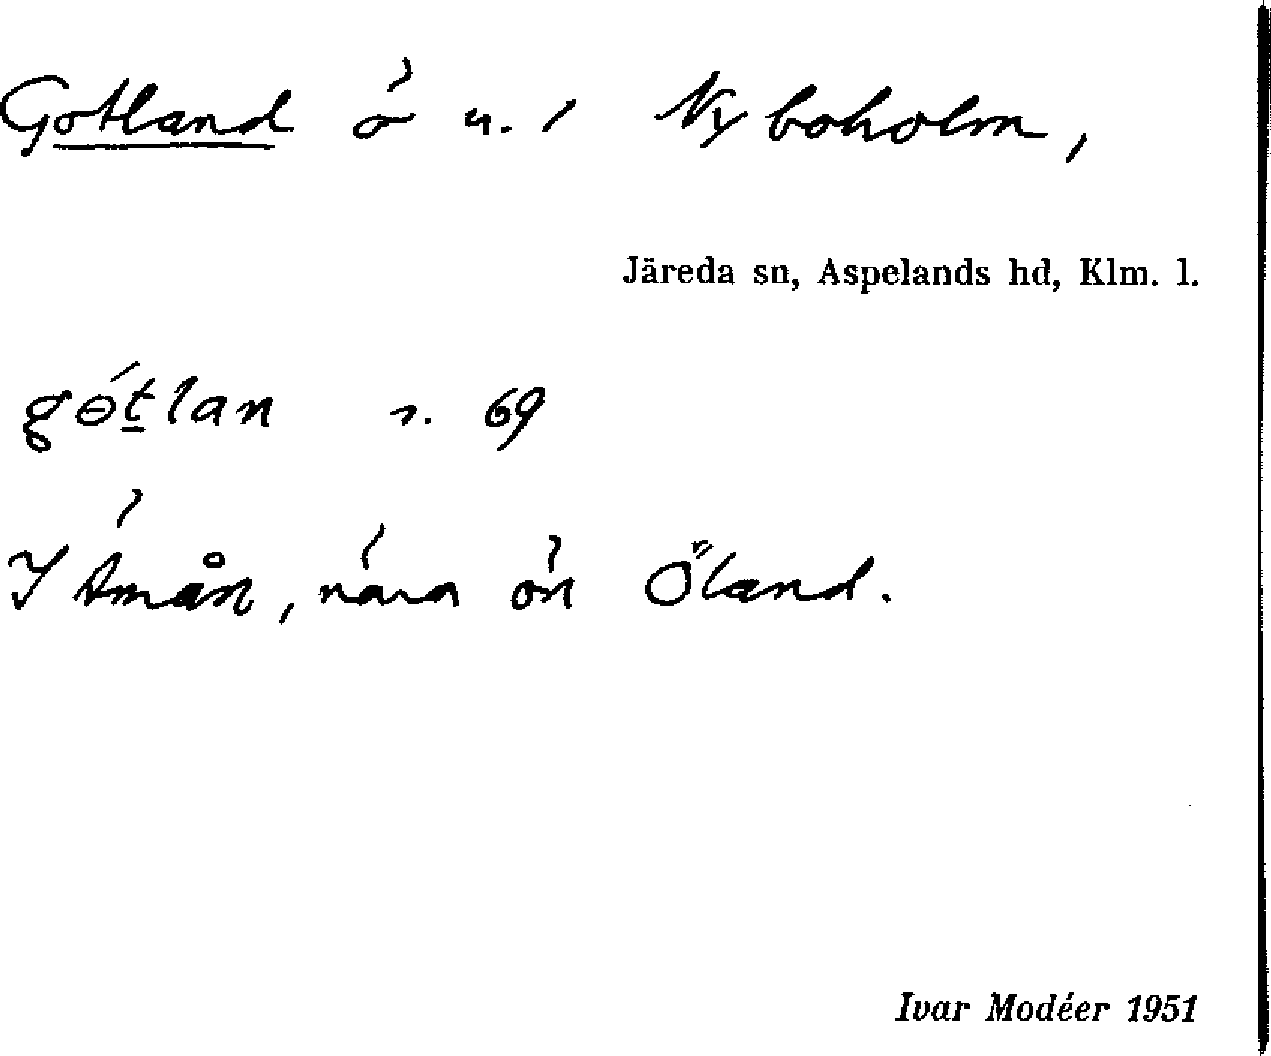 Gotland ö u. / Nyboholm,
Järeda sn, Aspelands hd, Klm. l.
gótlan s. 69
I Åmån, nära ön Öland.
Ivar Modéer 1951